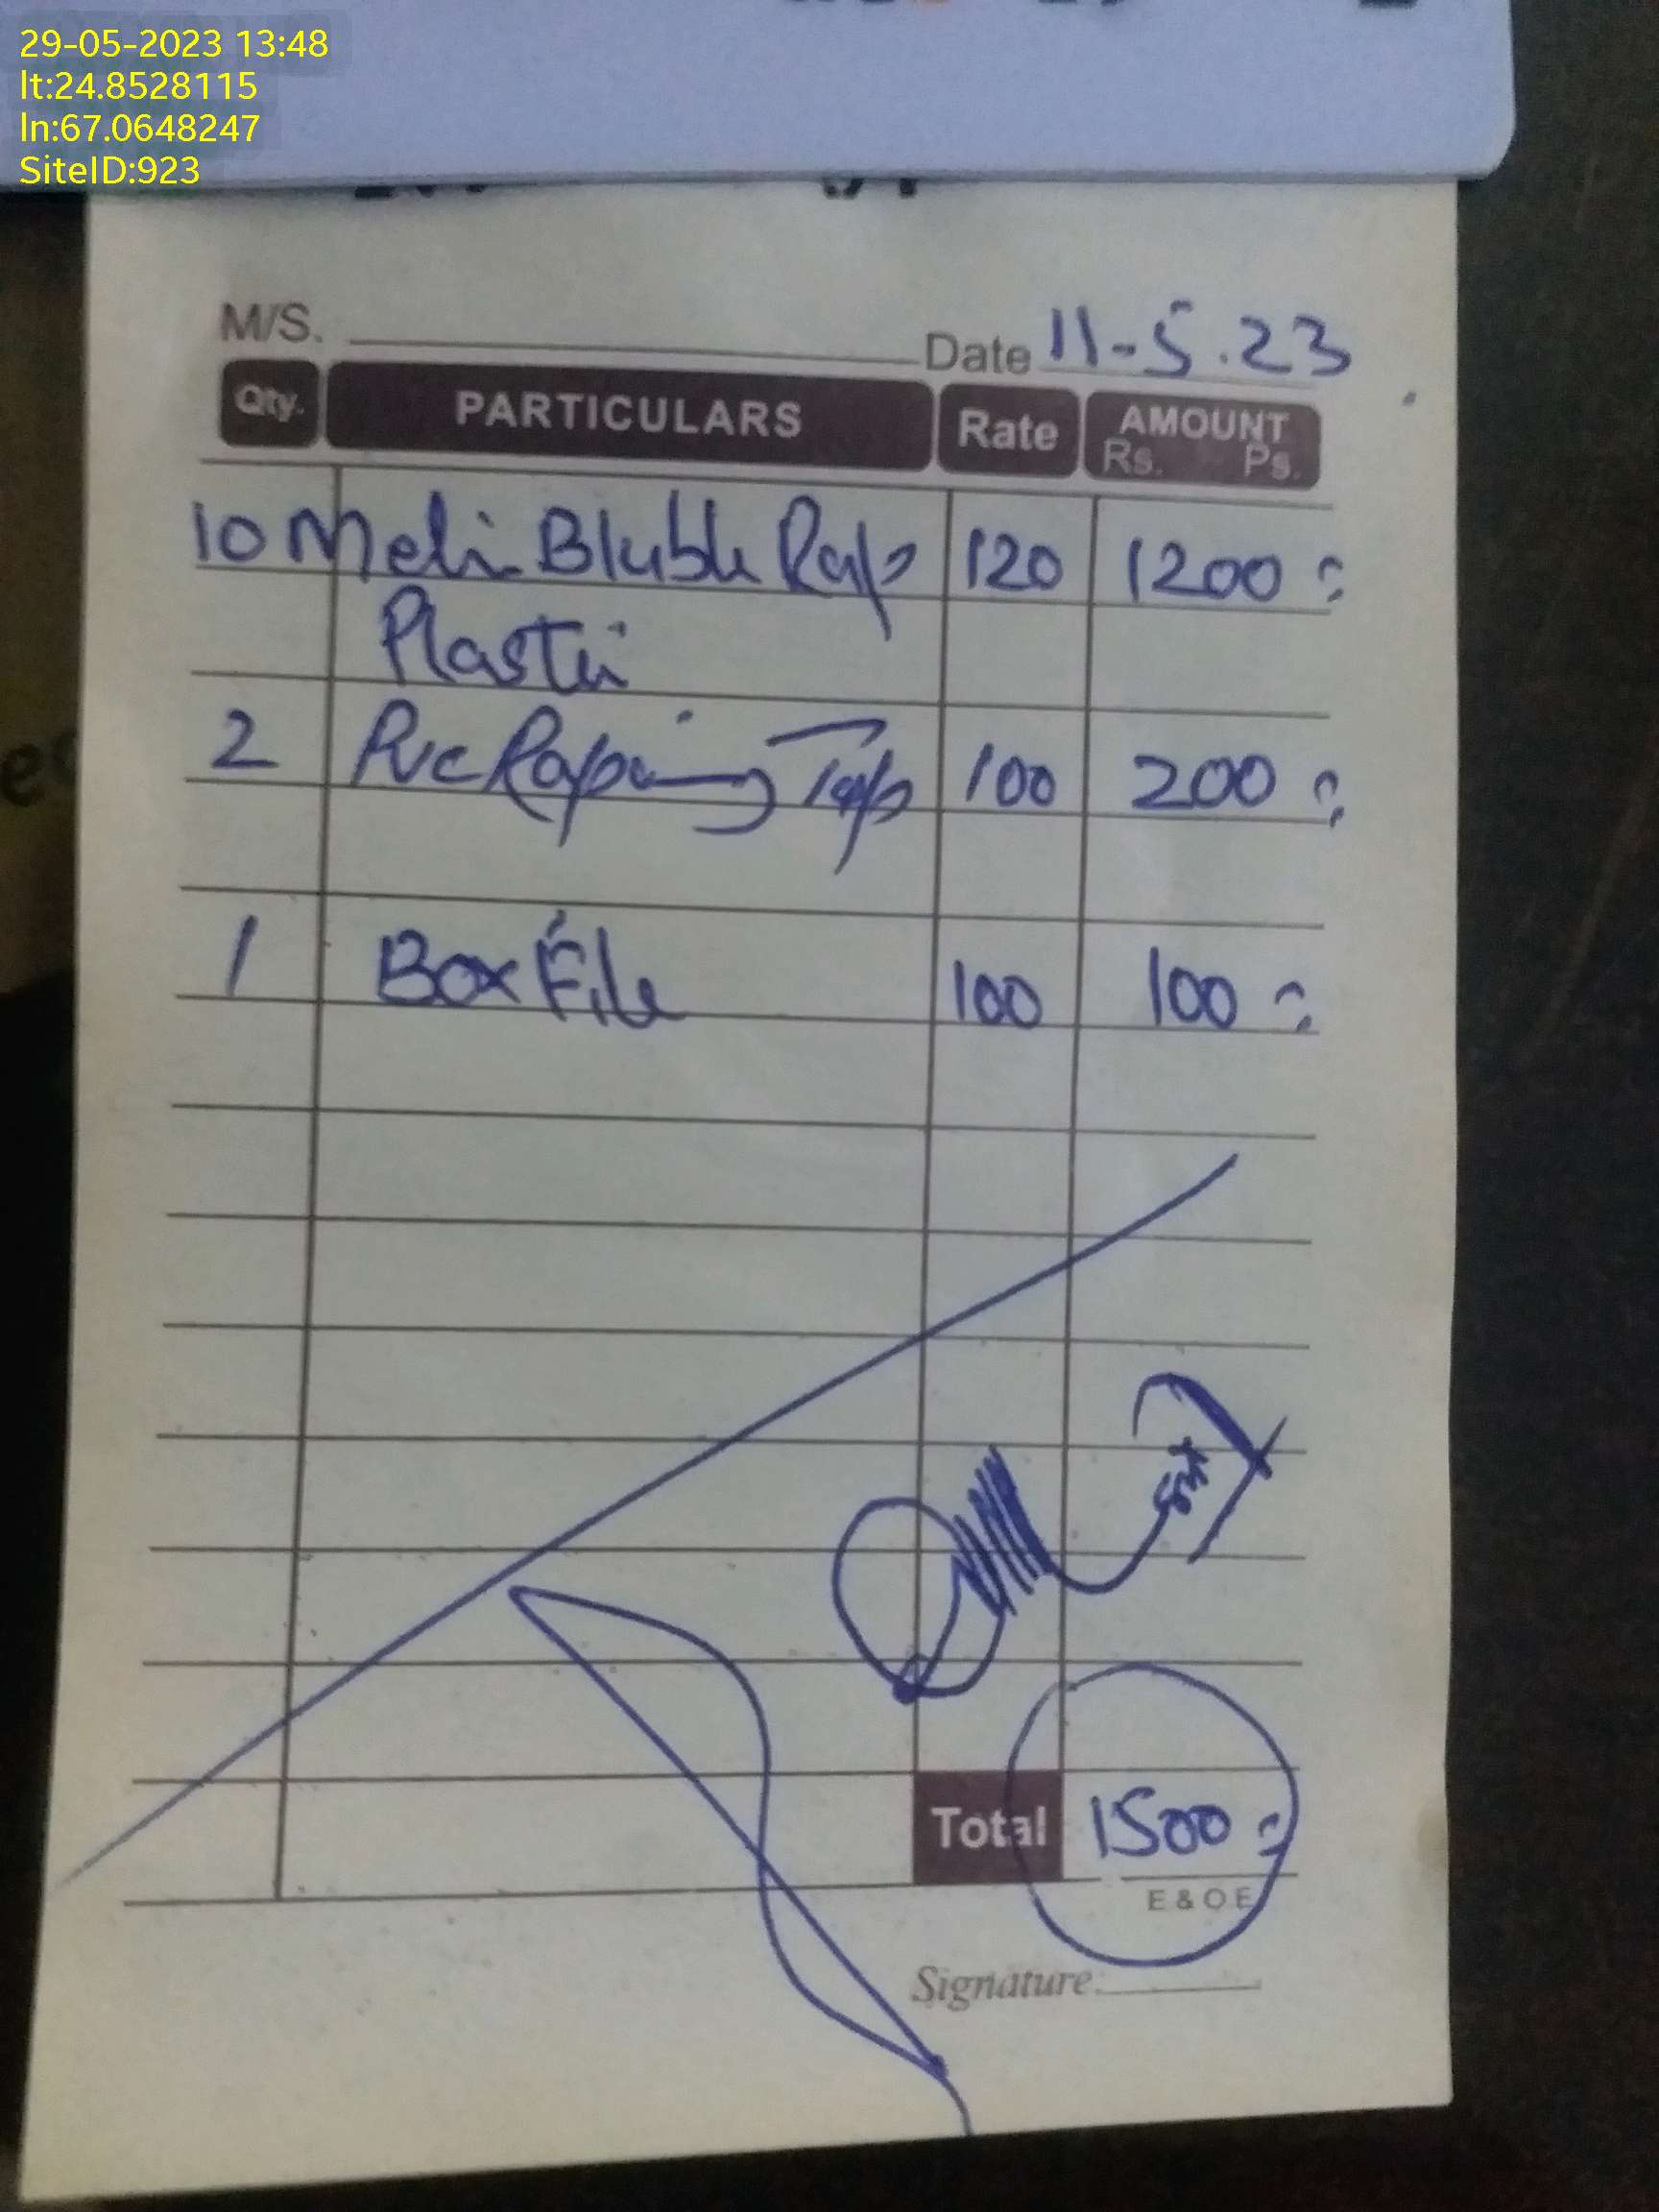 29-05-2023 13:48
lt:24.8528115
ln:67.0648247
SiteID:923
M/S. Date 11-5.23
Qty. PARTICULARS Rate AMOUNT
Rs. Ps.
10 Bluble Rap 120 1200
Plastic
2 Pvc Raping Tap 100 200
1 Box File 100 100
Total 1500
E & O E
Signature